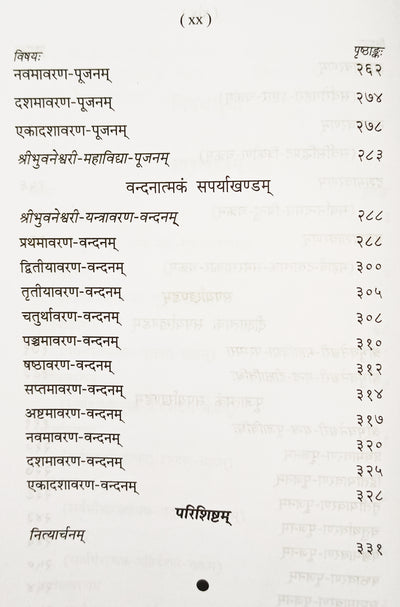 ( xx )
विषयः पृष्ठाङ्कः
नवमावरण-पूजनम् २६२
दशमावरण-पूजनम् २७४
एकादशावरण-पूजनम् २७८
श्रीभुवनेश्वरी-महाविद्या-पूजनम् २८३
वन्दनात्मकं सपर्याखण्डम्
श्रीभुवनेश्वरी-यन्त्रावरण-वन्दनम् २८८
प्रथमावरण-वन्दनम् २८८
द्वितीयावरण-वन्दनम् ३००
तृतीयावरण-वन्दनम् ३०५
चतुर्थावरण-वन्दनम् ३०८
पञ्चमावरण-वन्दनम् ३१०
षष्ठावरण-वन्दनम् ३१२
सप्तमावरण-वन्दनम् ३१४
अष्टमावरण-वन्दनम् ३१७
नवमावरण-वन्दनम् ३२०
दशमावरण-वन्दनम् ३२५
एकादशावरण-वन्दनम् ३२८
परिशिष्टम्
नित्यार्चनम् ३३१